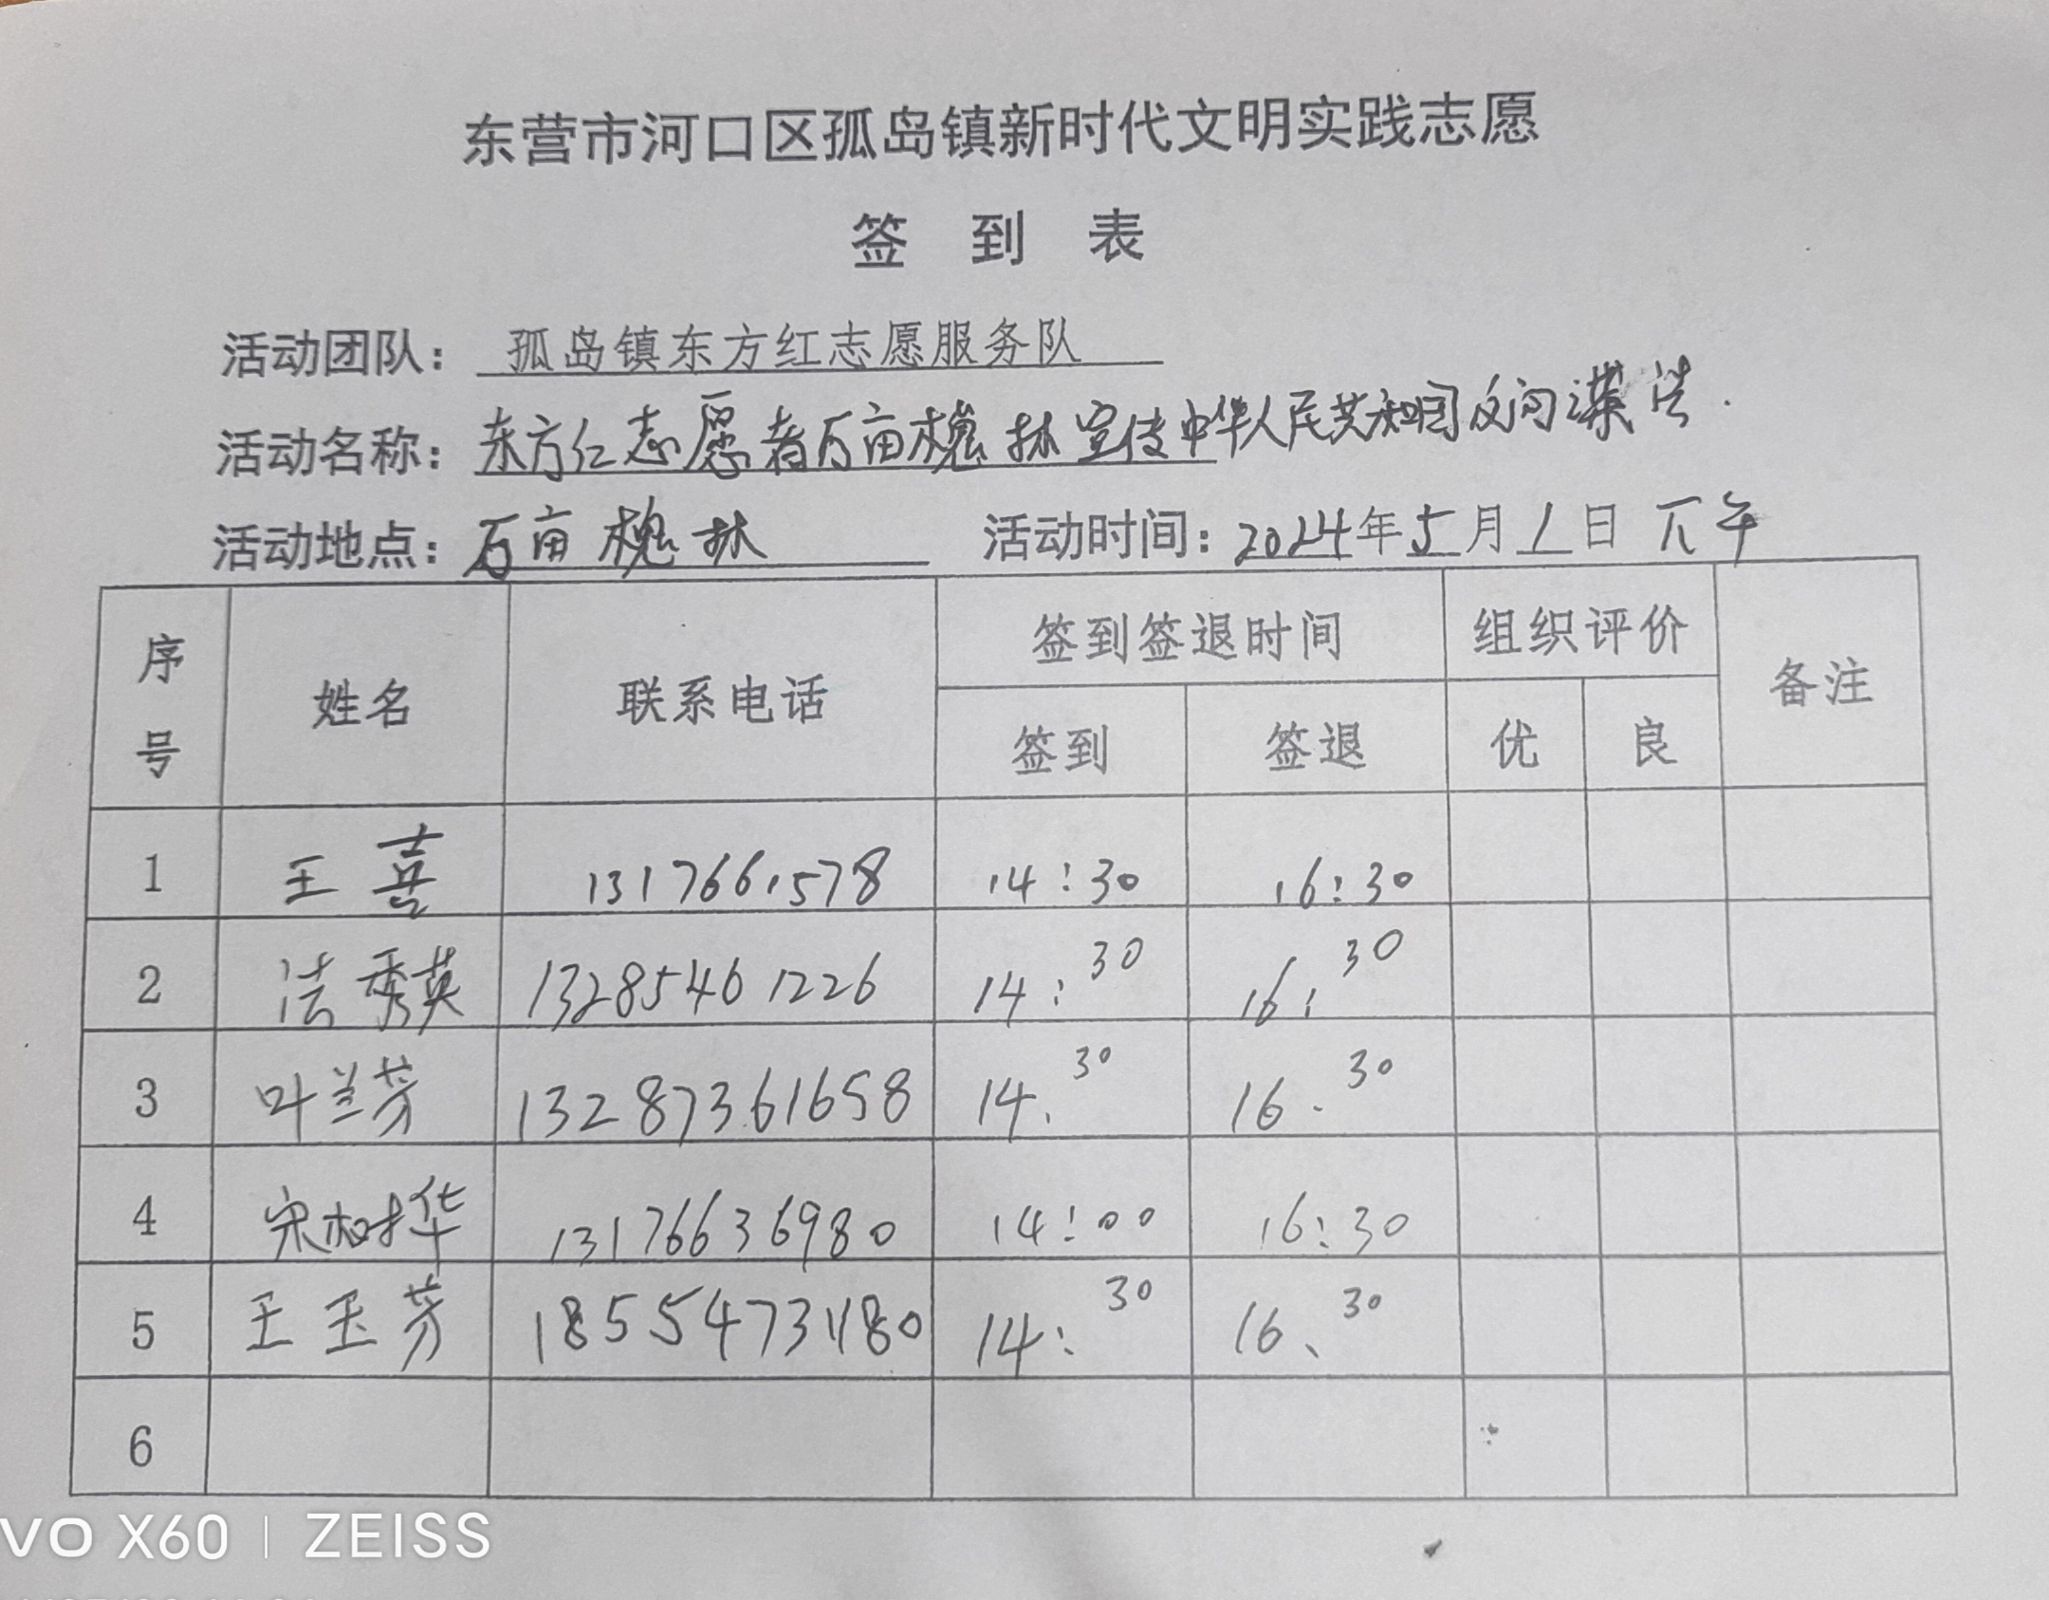 东营市河口区孤岛镇新时代文明实践志愿
签 到 表
活动团队: 孤岛镇东方红志愿服务队
活动名称: 东方红志愿者万亩槐林宣传中华人民共和国反间谍法.
活动地点: 万亩槐林 活动时间: 2024年5月1日 下午
序号 姓名 联系电话 签到签退时间 组织评价 备注
签到 签退 优 良
1 王喜 1317661578 14:30 16:30
2 秀英 13285461226 14:30 16:30
3 叶兰芬 13287361658 14.30 16.30
4 宋树华 13176636980 14:00 16:30
5 王玉芬 18554731180 14:30 16、30
6
VO X60 | ZEISS